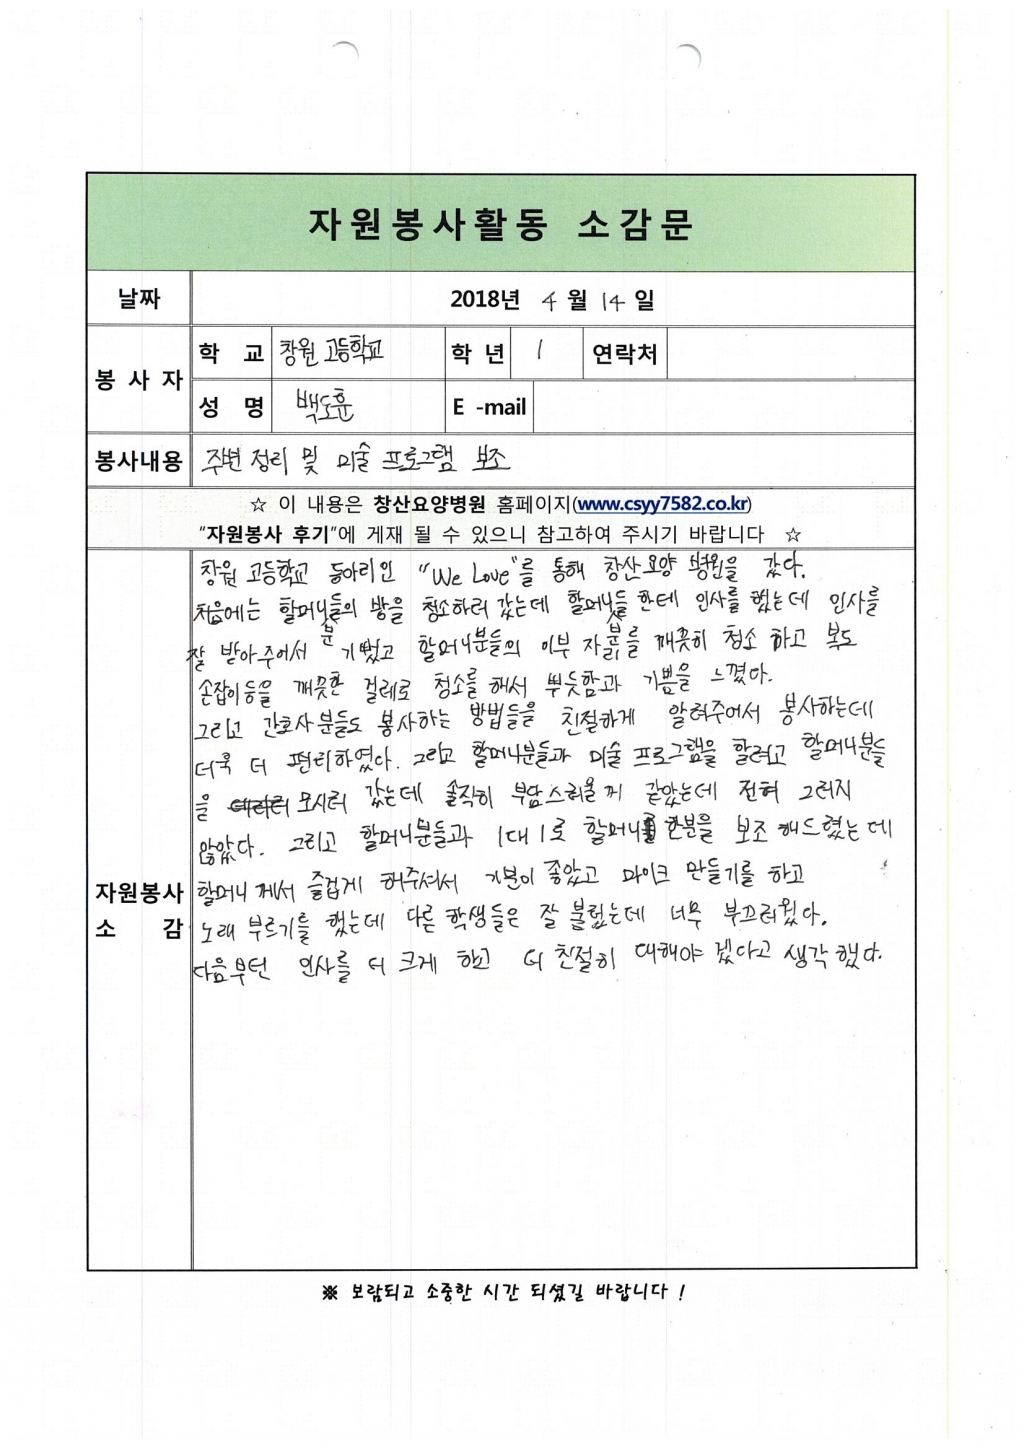 자원봉사활동 소감문
날짜 2018년 4 월 14 일
봉 사 자 학 교 창원 고등학교 학 년 1 연락처
성 명 백도훈 E -mail
봉사내용 주변 정리 및 미술 프로그램 보조
☆ 이 내용은 창산요양병원 홈페이지(www.csyy7582.co.kr)
“자원봉사 후기”에 게재 될 수 있으니 참고하여 주시기 바랍니다 ☆
자원봉사 소 감
창원 고등학교 동아리인 “We Love”를 통해 창산 요양 병원을 갔다.
처음에는 할머니분들의 방을 청소하러 갔는데 할머니분들 한테 인사를 했는데 인사를
잘 받아주어서 기뻤고 할머니분들의 이부 자리를 깨끗히 청소 하고 복도
손잡이 등을 깨끗한 걸레로 청소를 해서 뿌듯함과 기쁨을 느꼈다.
그리고 간호사 분들도 봉사하는 방법들을 친절하게 알려주어서 봉사하는데
더욱 더 편리하였다. 그리고 할머니분들과 미술 프로그램을 할려고 할머니분들
을 모시러 갔는데 솔직히 부담스러울 꺼 같았는데 전혀 그러지
않았다. 그리고 할머니분들과 1대1로 할머니 한분을 보조 해드렸는데
할머니 께서 즐겁게 해주셔서 기분이 좋았고 마이크 만들기를 하고
노래 부르기를 했는데 다른 학생들은 잘 불렀는데 너무 부끄러웠다.
다음부턴 인사를 더 크게 하고 더 친절히 대해야 겠다고 생각 했다.
※ 보람되고 소중한 시간 되셨길 바랍니다 !